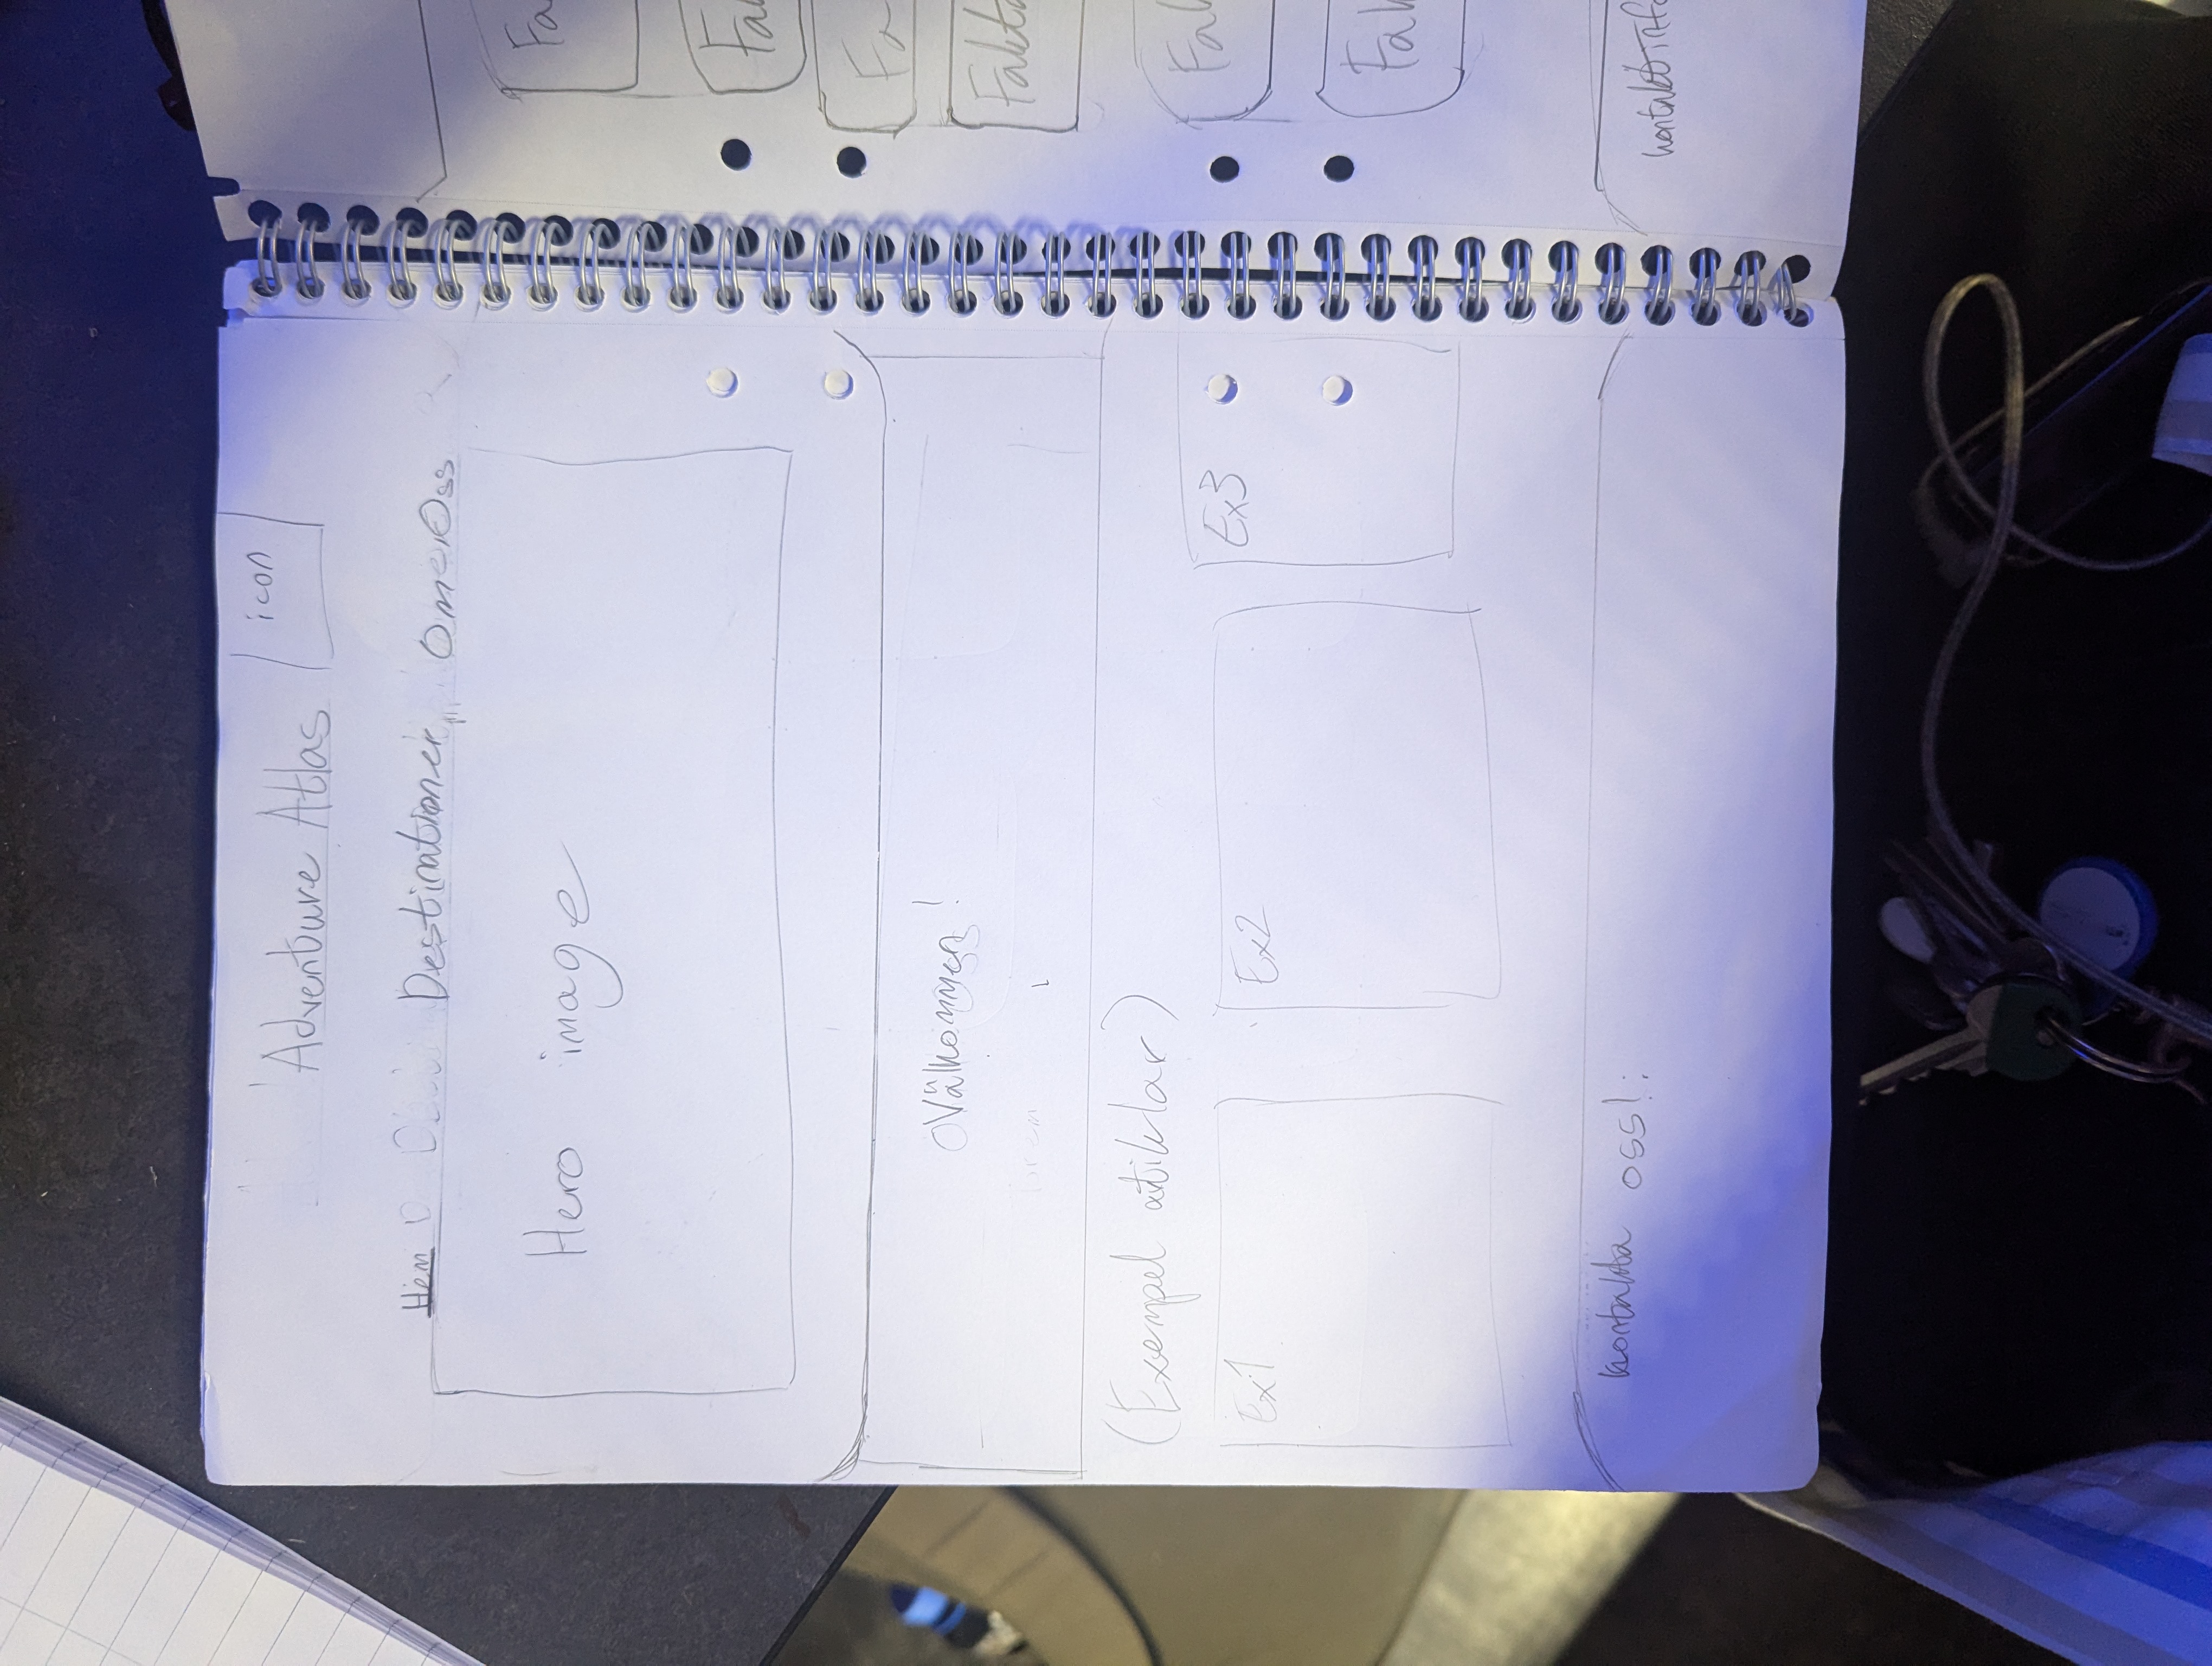 Adventure Atlas
icon
Hem Destinationer Om Oss
Hero image
Välkommen!
(Exempel atiklar)
Ex1
Ex2
Ex3
kontakta oss!:
Fa
Fak
Fa
Fakta
Fak
Fak
kontaktinfo